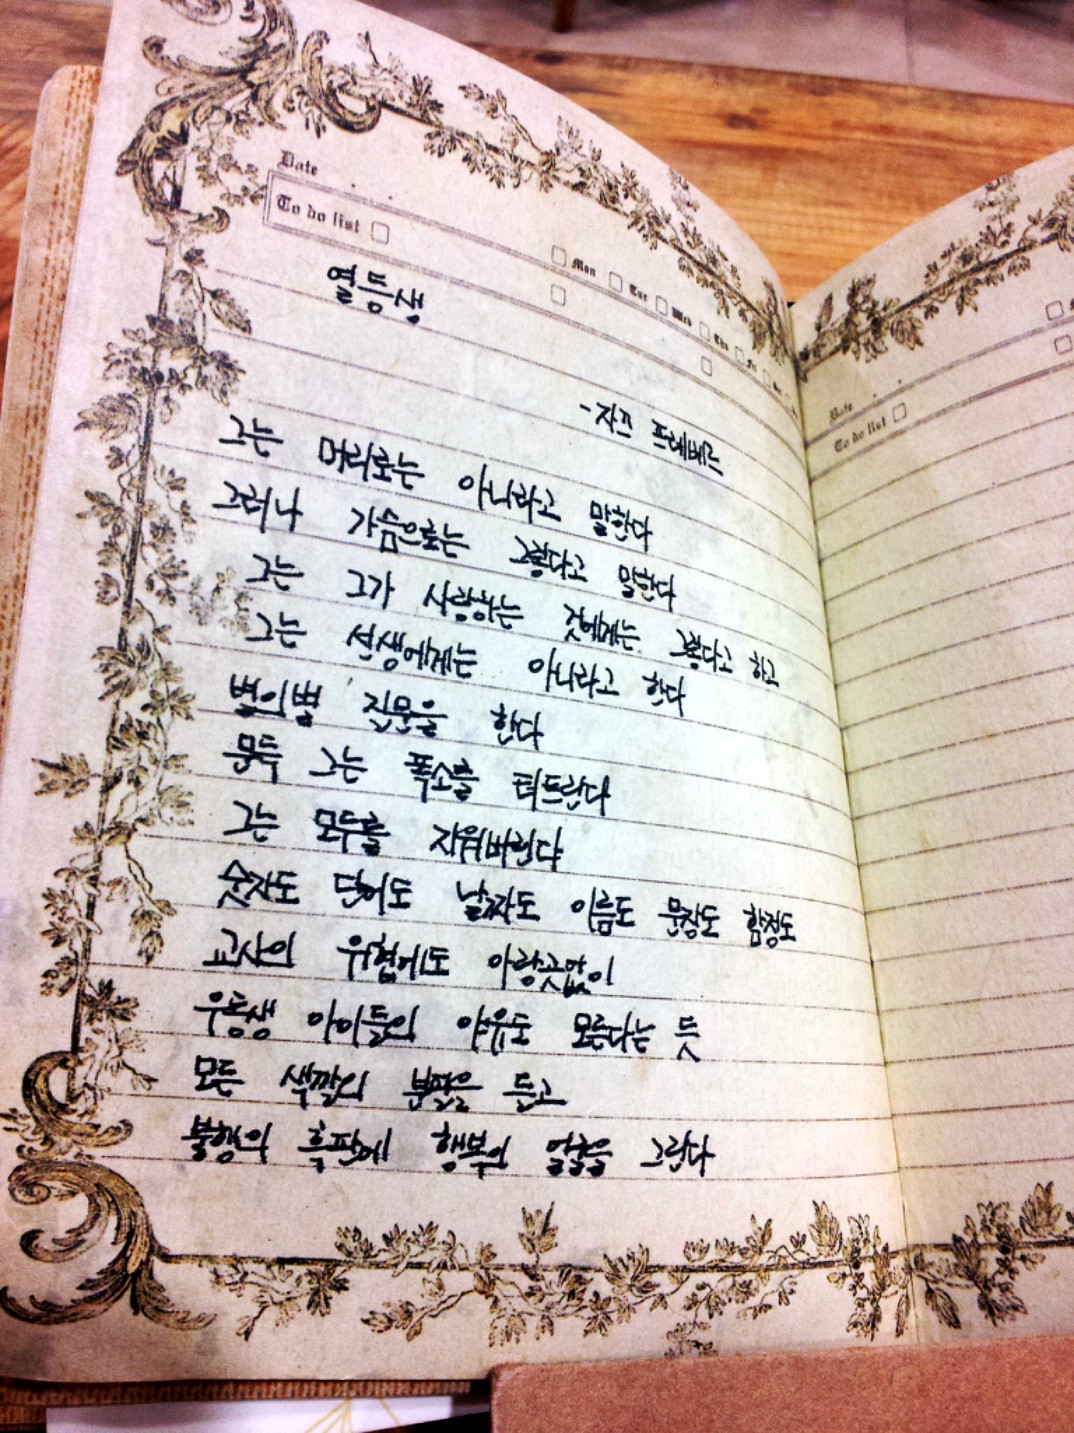 Date
To do list
Mon Tue Wed Thu Fri
열등생
-자끄 프레베르
그는 머리로는 아니라고 말한다
그러나 가슴으로는 그렇다고 말한다
그는 그가 사랑하는 것에게는 그렇다고 하고
그는 선생에게는 아니라고 한다
별의별 질문을 한다
문득 그는 폭소를 터트린다
그는 모두를 지워버린다
숫자도 단어도 날짜도 이름도 문장도 함정도
교사의 위협에도 아랑곳없이
우등생 아이들의 야유도 모른다는 듯
모든 색깔의 분필을 들고
불행의 흑판에 행복의 얼굴을 그린다
Date
To do list